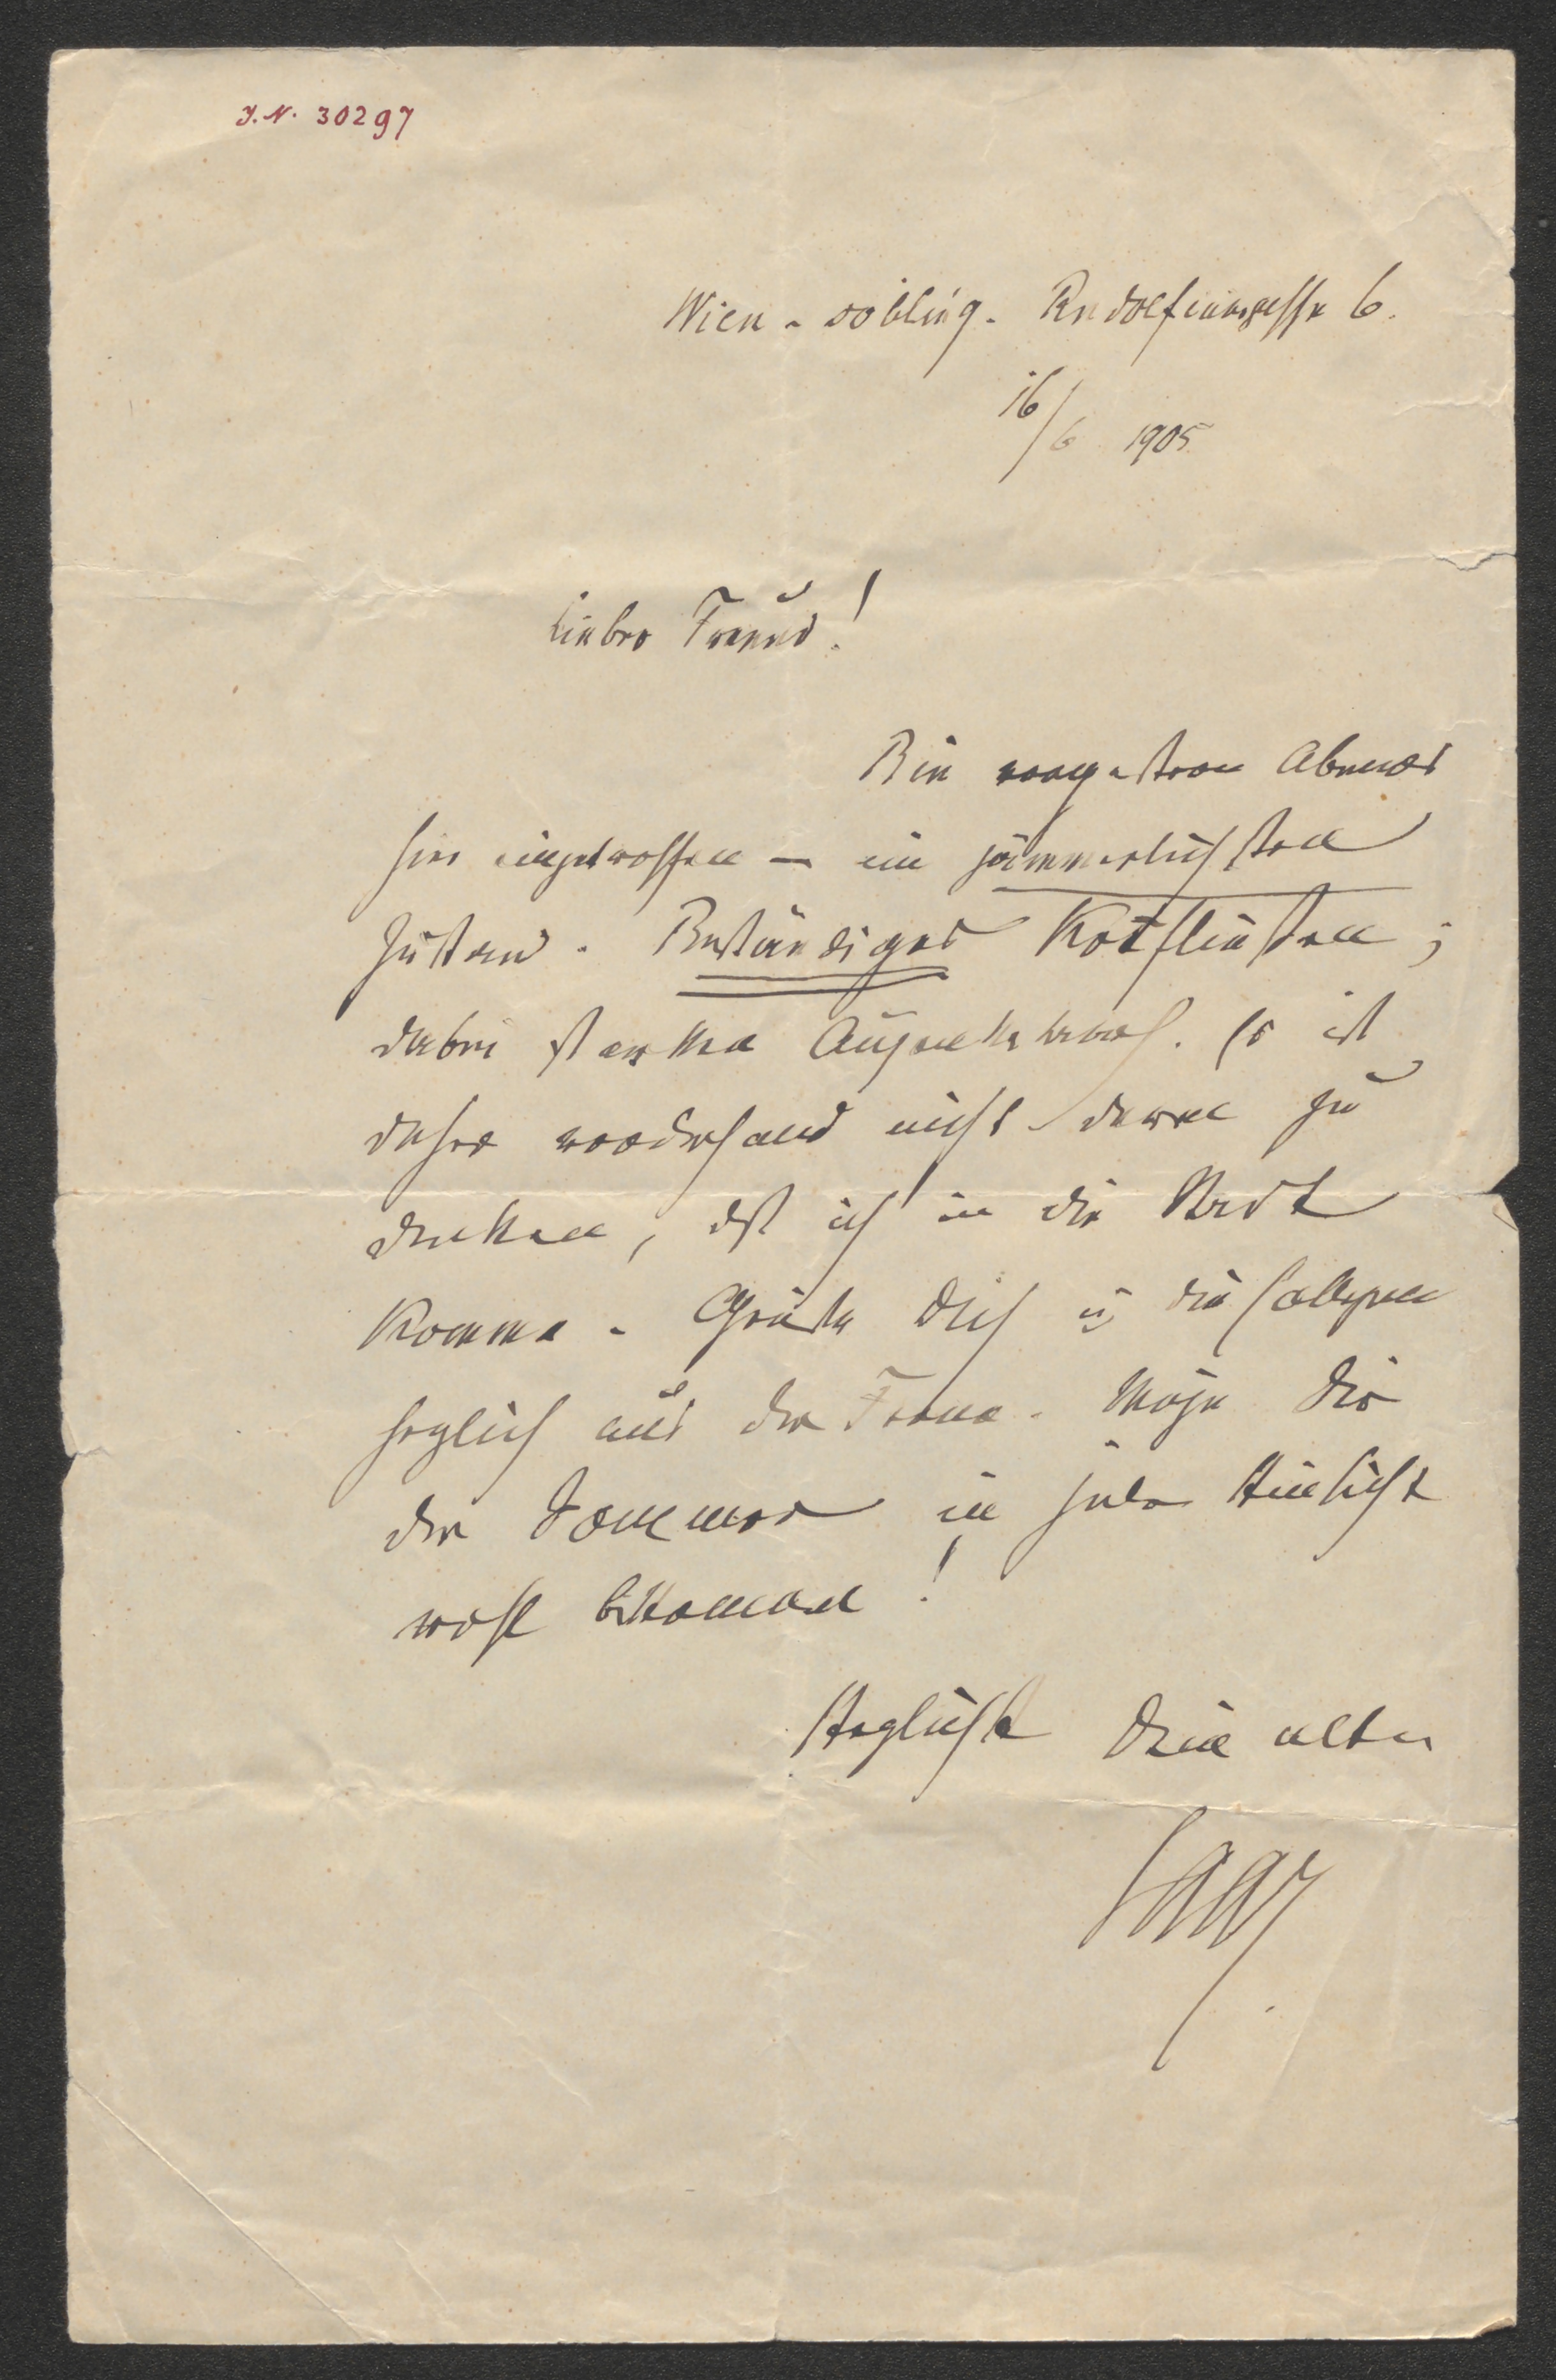 J. N. 30297
Wien - Döbling. Rudolfinergasse 6.
16/6 1905
Lieber Freund!
Bin vorgestern Abends
hier eingetroffen — im jämmerlichsten
Zustand. Beständiges Kotfließen;
dabei starker Augenkatarrh. Es ist
daher vorderhand nicht daran zu
denken, daß ich in die Stadt
komme. Grüße Dich u die
herzlich aus der Ferne. Möge Dir
der Sommer in jeder Hinsicht
wohl bekommen!
Herzlichst Dein alter
Saar